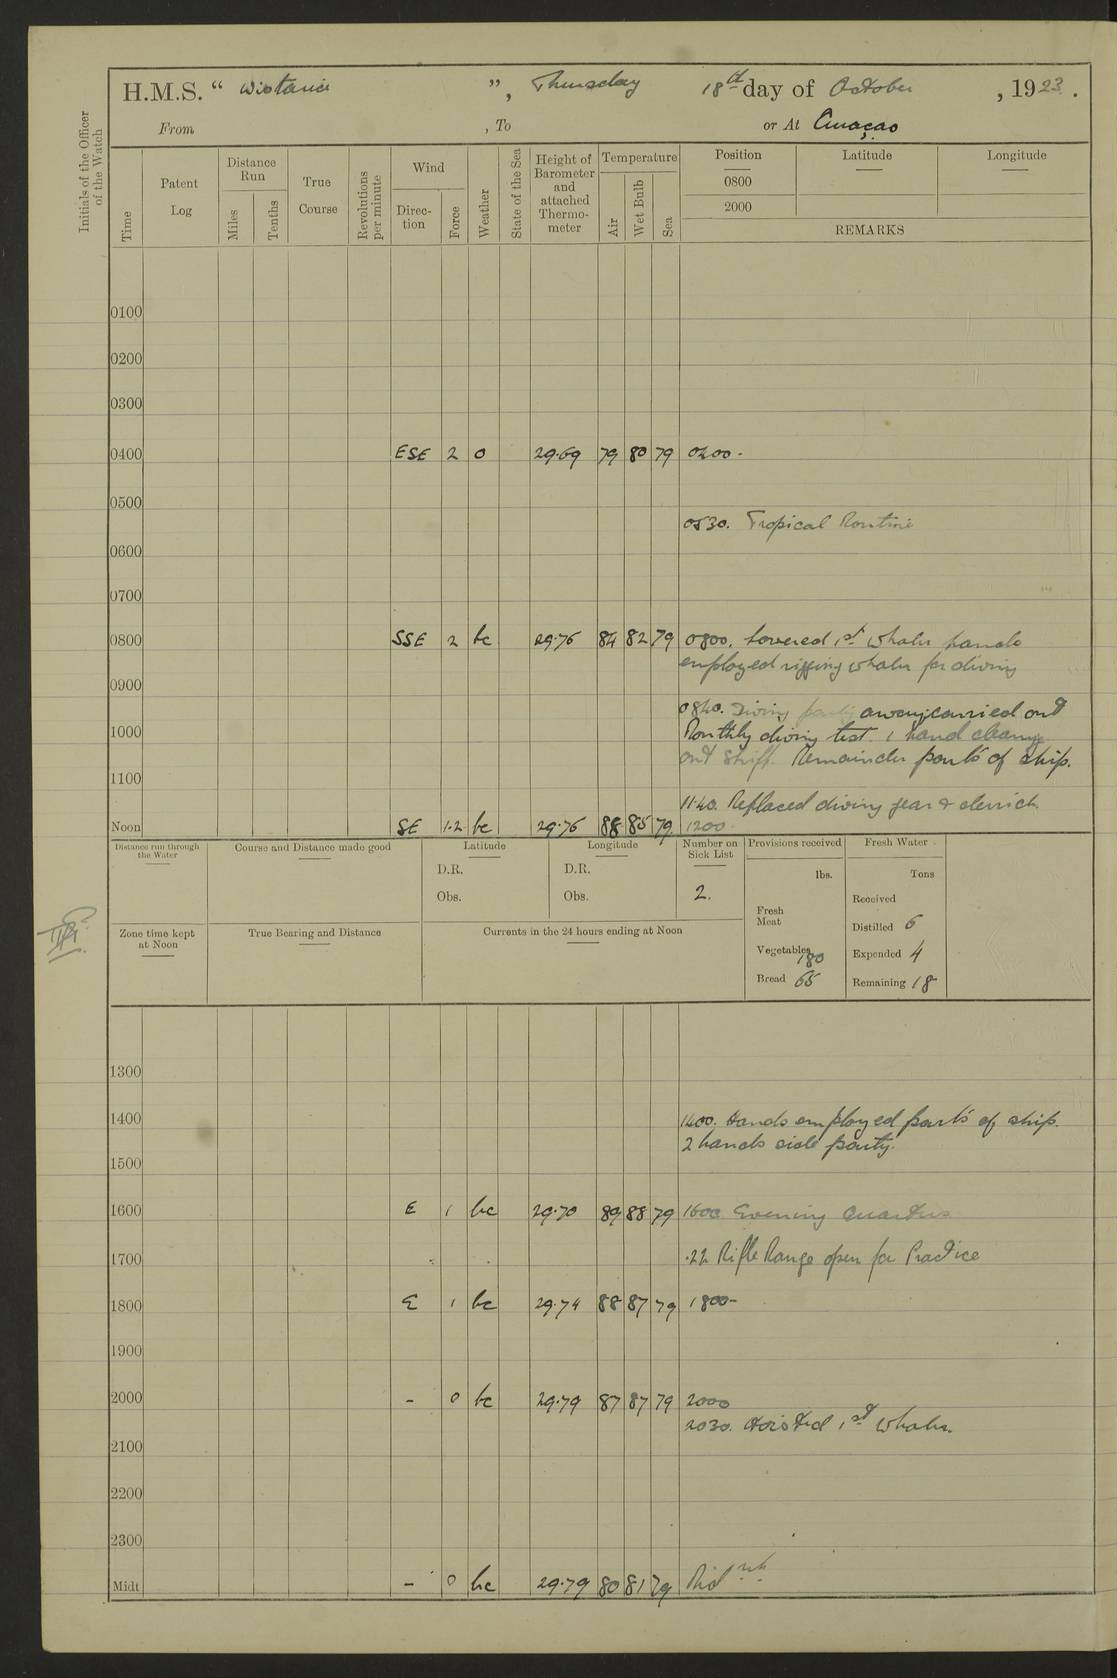 H.M.S. “ Wistaria ”, Thursday 18th day of October , 1923.
From , To or At Curaçao
Initials of the Officer of the Watch
Time
Patent Log
Distance Run
Miles
Tenths
True Course
Revolutions per minute
Wind
Direction
Force
Weather
State of the Sea
Height of Barometer and attached Thermometer
Temperature
Air
Wet Bulb
Sea
Position Latitude Longitude
0800
2000
REMARKS
0100
0200
0300
0400 ESE 2 o 29.69 79 80 79 0400.
0500
0530. Tropical Routine
0600
0700
0800 SSE 2 bc 29.76 84 82 79 0800. Lowered 1st Whaler hands
employed rigging whaler for diving
0900
0840. Diving party away, carried out
1000 Monthly diving test. 1 hand cleaning
out skiff. Remainder parts of ship.
1100
1140. Replaced diving gear & derrick
Noon SE 1.2 bc 29.76 88 85 79 1200.
Distance run through the Water
Course and Distance made good
Latitude
D.R.
Obs.
Longitude
D.R.
Obs.
Number on Sick List
2.
Provisions received
lbs.
Fresh Meat
Vegetables 180
Bread 65
Fresh Water
Tons
Received
Distilled 6
Expended 4
Remaining 18
Zone time kept at Noon
True Bearing and Distance
Currents in the 24 hours ending at Noon
1300
1400 1400. Hands employed parts of ship.
2 hands side party.
1500
1600 E 1 bc 29.70 89 88 79 1600 Evening Quarters
1700 .22 Rifle Range open for Practice
1800 E 1 bc 29.74 88 87 79 1800-
1900
2000 - 0 bc 29.79 87 87 79 2000
2030. Hoisted 1st Whaler.
2100
2200
2300
Midt - 0 bc 29.79 80 81 79 Midnt